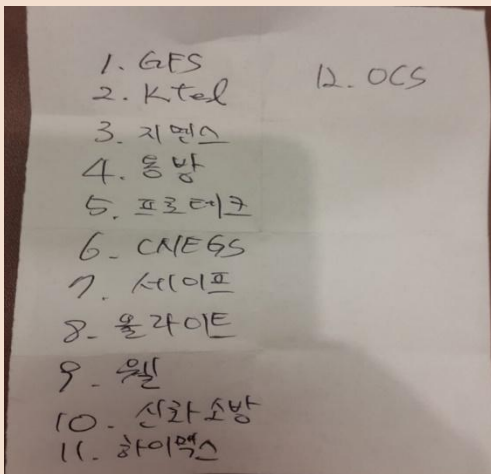 1. GFS
2. Ktel
3. 지멘스
4. 동방
5. 프로테크
6. CNEGS
7. 세이프
8. 올라이트
9. 웰
10. 신화소방
11. 하이맥스
12. OCS